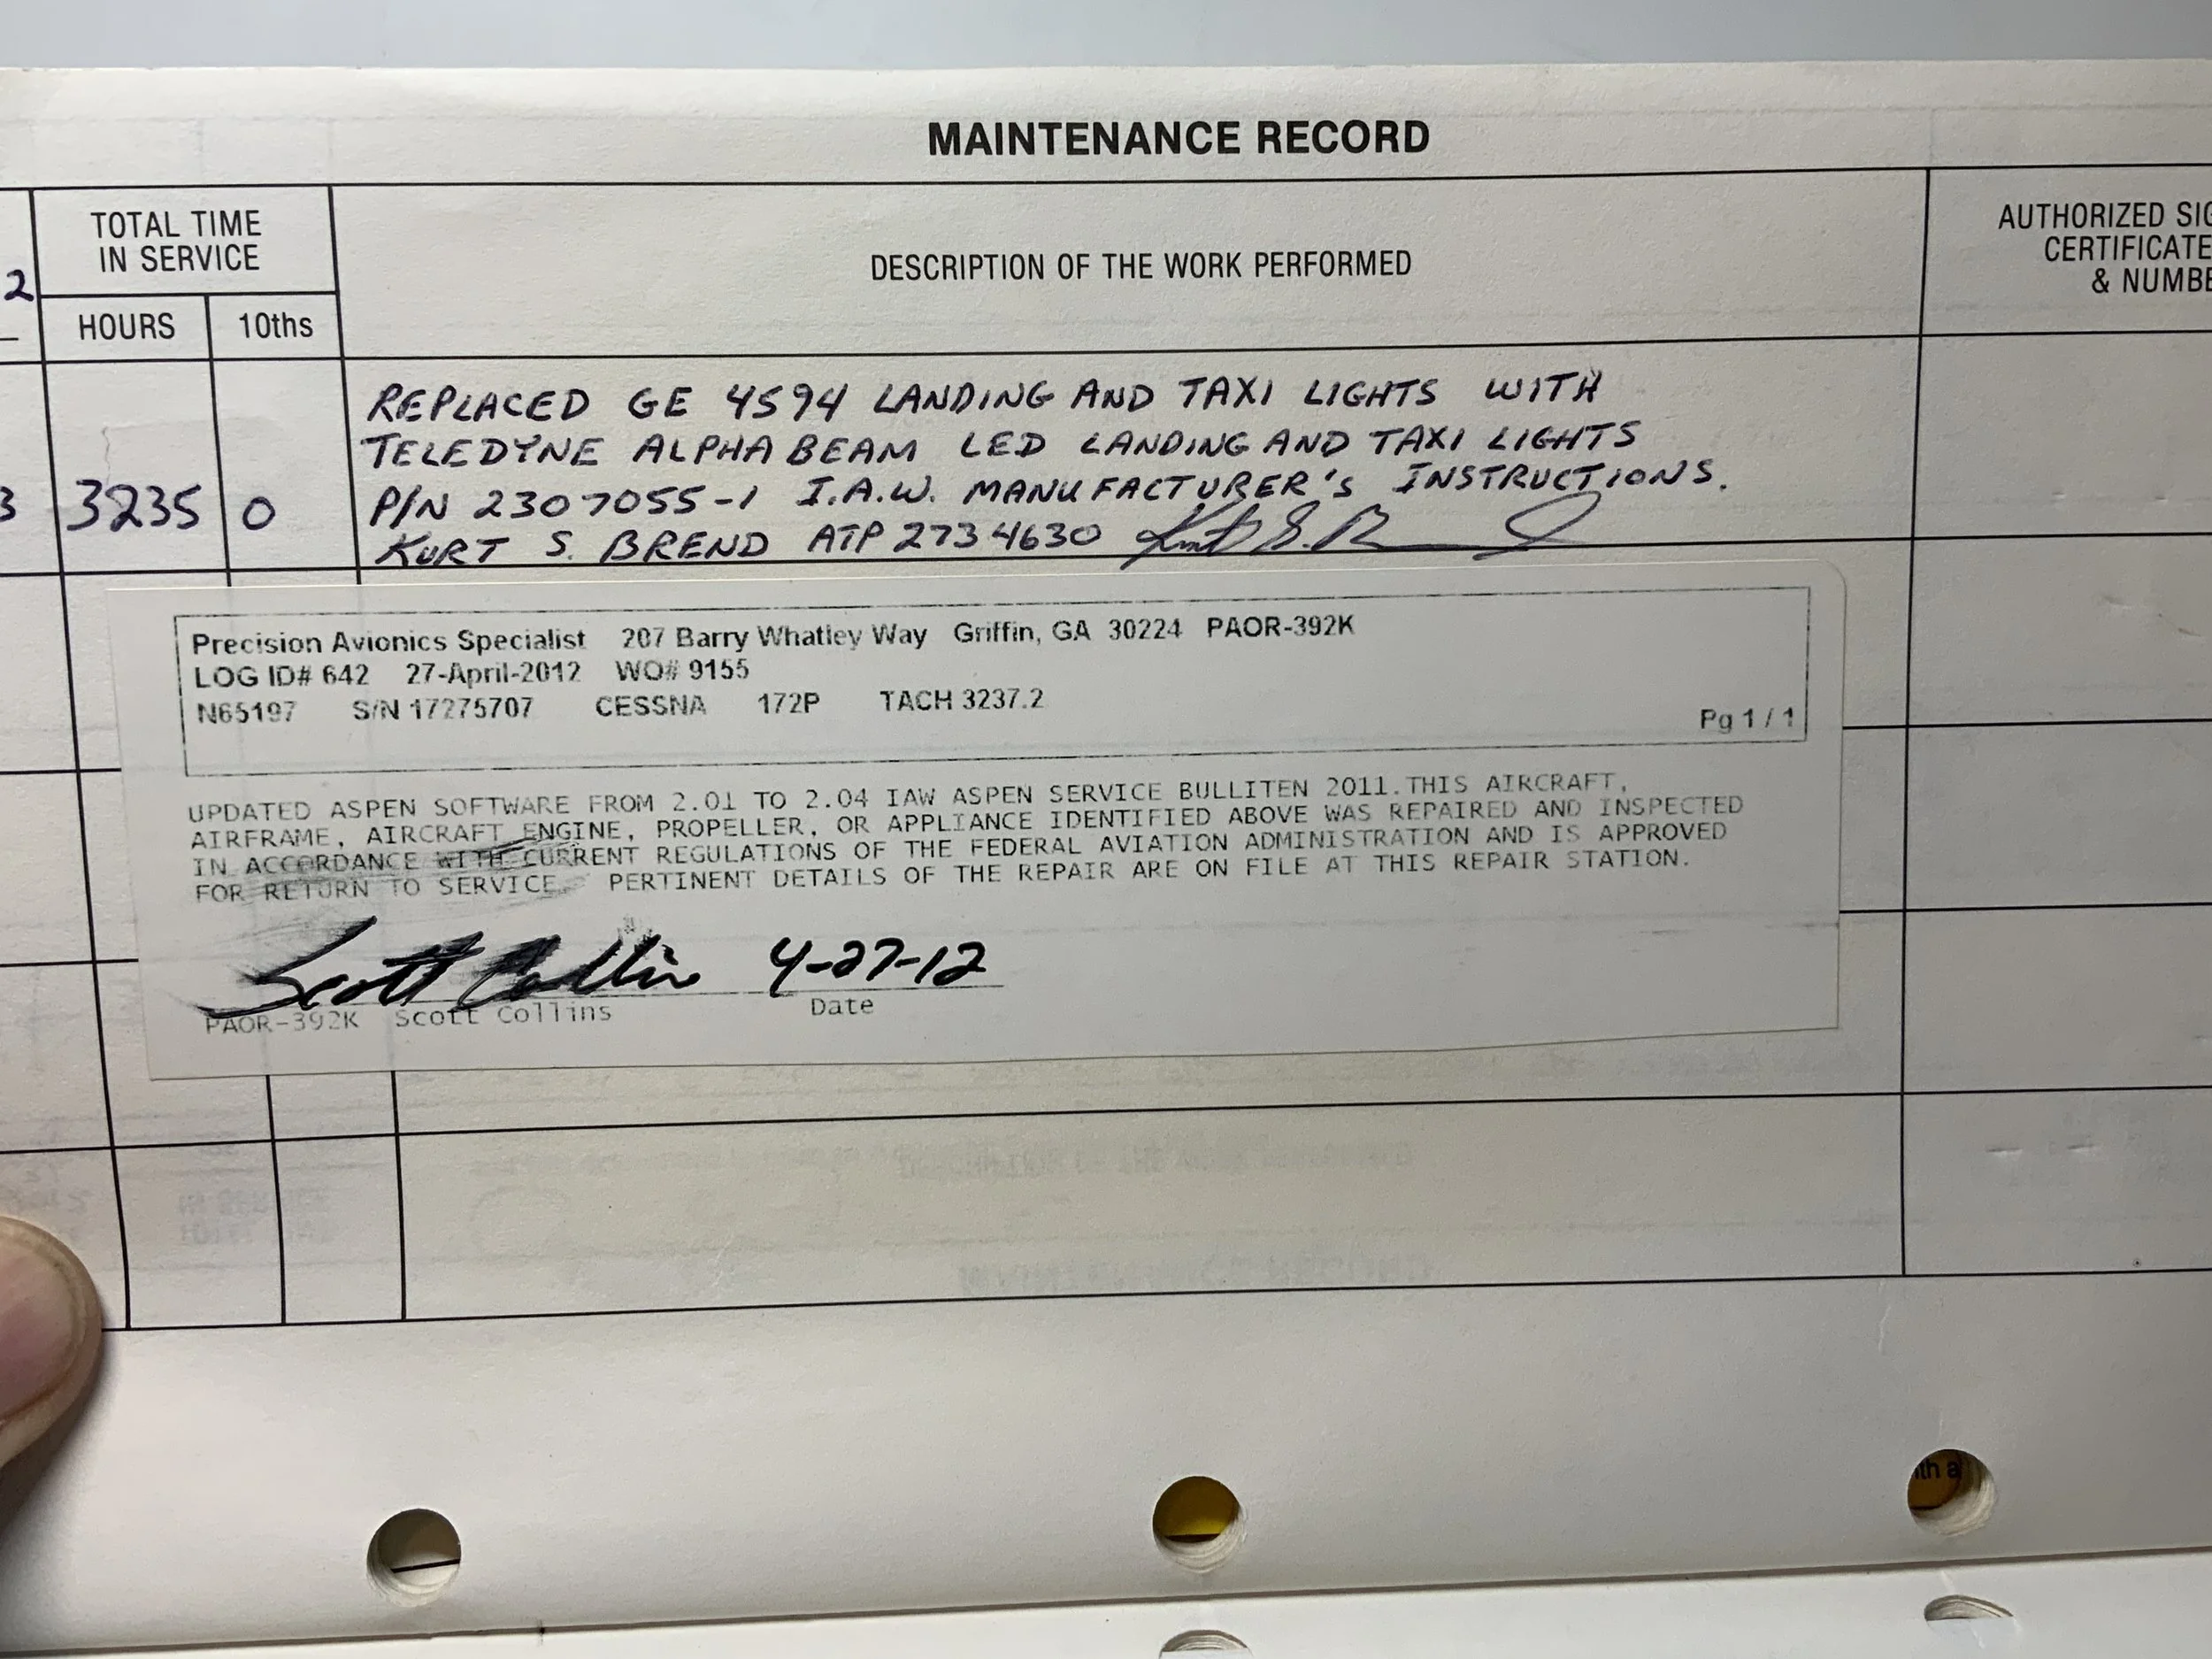 MAINTENANCE RECORD
TOTAL TIME
IN SERVICE
HOURS
10ths
DESCRIPTION OF THE WORK PERFORMED
AUTHORIZED SIG
CERTIFICATE
& NUMBE
2
3
3235
0
REPLACED GE 4594 LANDING AND TAXI LIGHTS WITH
TELEDYNE ALPHABEAM LED LANDING AND TAXI LIGHTS
P/N 2307055-1 I.A.W. MANUFACTURER'S INSTRUCTIONS.
KURT S. BREND ATP 2734630
Precision Avionics Specialist 207 Barry Whatley Way Griffin, GA 30224 PAOR-392K
LOG ID# 642 27-April-2012 WO# 9155
N65197 S/N 17275707 CESSNA 172P TACH 3237.2
Pg 1 / 1
UPDATED ASPEN SOFTWARE FROM 2.01 TO 2.04 IAW ASPEN SERVICE BULLITEN 2011.THIS AIRCRAFT,
AIRFRAME, AIRCRAFT ENGINE, PROPELLER, OR APPLIANCE IDENTIFIED ABOVE WAS REPAIRED AND INSPECTED
IN ACCORDANCE WITH CURRENT REGULATIONS OF THE FEDERAL AVIATION ADMINISTRATION AND IS APPROVED
FOR RETURN TO SERVICE. PERTINENT DETAILS OF THE REPAIR ARE ON FILE AT THIS REPAIR STATION.
Scott Collins 4-27-12
PAOR-392K Scott Collins Date
th a